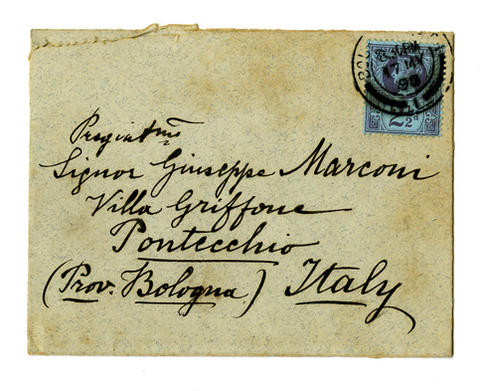 Pregiatmo
Signor Giuseppe Marconi
Villa Griffone
Pontecchio
(Prov. Bologna) Italy
17 MY
98
2½d